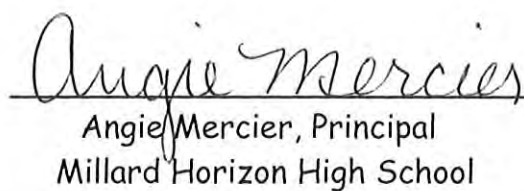 Angie Mercier
Angie Mercier, Principal
Millard Horizon High School